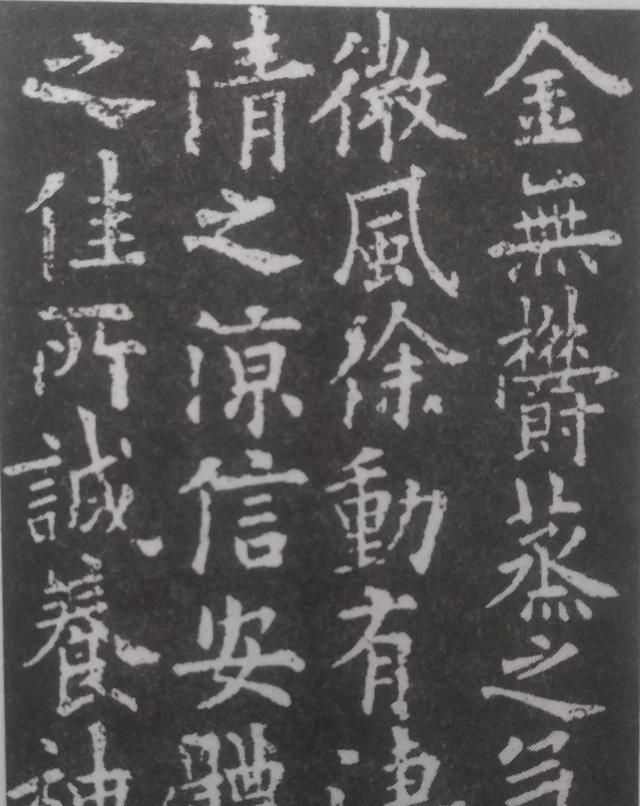 金無欝蒸之
微風徐動有淒
清之涼信安體
之佳所誠養神